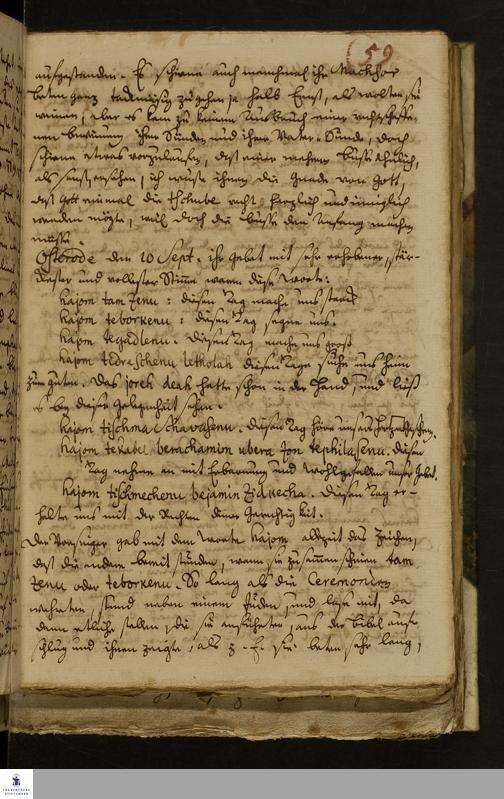 59
aufgestanden. Es schiene auch manchmal ihr Machsor
beten ganz zu gehen ja halb Ernst, als wolten sie
weinen, aber es kam zu keinem Ausbruch einer rechtschaffe-
nen bereuung ihrer Sünden und ihrer Väter Sünde, doch
schiene etwas vorzulaufen, das einer wahren Buße ähnlich,
als, ich wünschte ihnen die Gnade von Gott,
daß Gott einmal die tschube recht herzlich und inniglich
werden möchte, weil doch die Buße den Anfang machen
müste.
Osterode den 10 Sept. ihr Gebet mit sehr erhobener, stär-
ckester und vollester Stimm waren diese Worte:
hajom tamzenu: diesen Tag mache uns starck
hajom teborkenu: diesen Tag segne uns.
hajom tegadlenu. diesen Tag mache uns groß
hajom tidreschenu letholah diesen Tage suche uns heim
zum guten. Das joreh deah hatte schon in der Hand, und ließ
es bey dieser Gelegenheit sehen.
hajom tischma schavasenu. diesen Tag höre unser
hajom tekabel berachamim ubera zon tephilasenu. diesen
Tag nehme an mit Erbarmung und Wohlgefallen unser Gebet.
hajom tischmechenu bejamin Zidkecha. diesen Tag er-
halte uns mit der Rechten deiner Gerechtigkeit.
Der Vorsinger gab mit dem Worte hajom allezeit das Zeichen,
daß die andern bereit stunden, wann sie zusammen schrien tam
zenu oder teborkenu. So lang als die Ceremonien
wehreten, stund neben einem Juden, und lase mit, da
dann etliche stellen, die sie anführeten, aus der Bibel auf-
schlug und ihnen zeigte, als z. E. sie beten sehr lang,
FRANCKESCHE
STIFTUNGEN